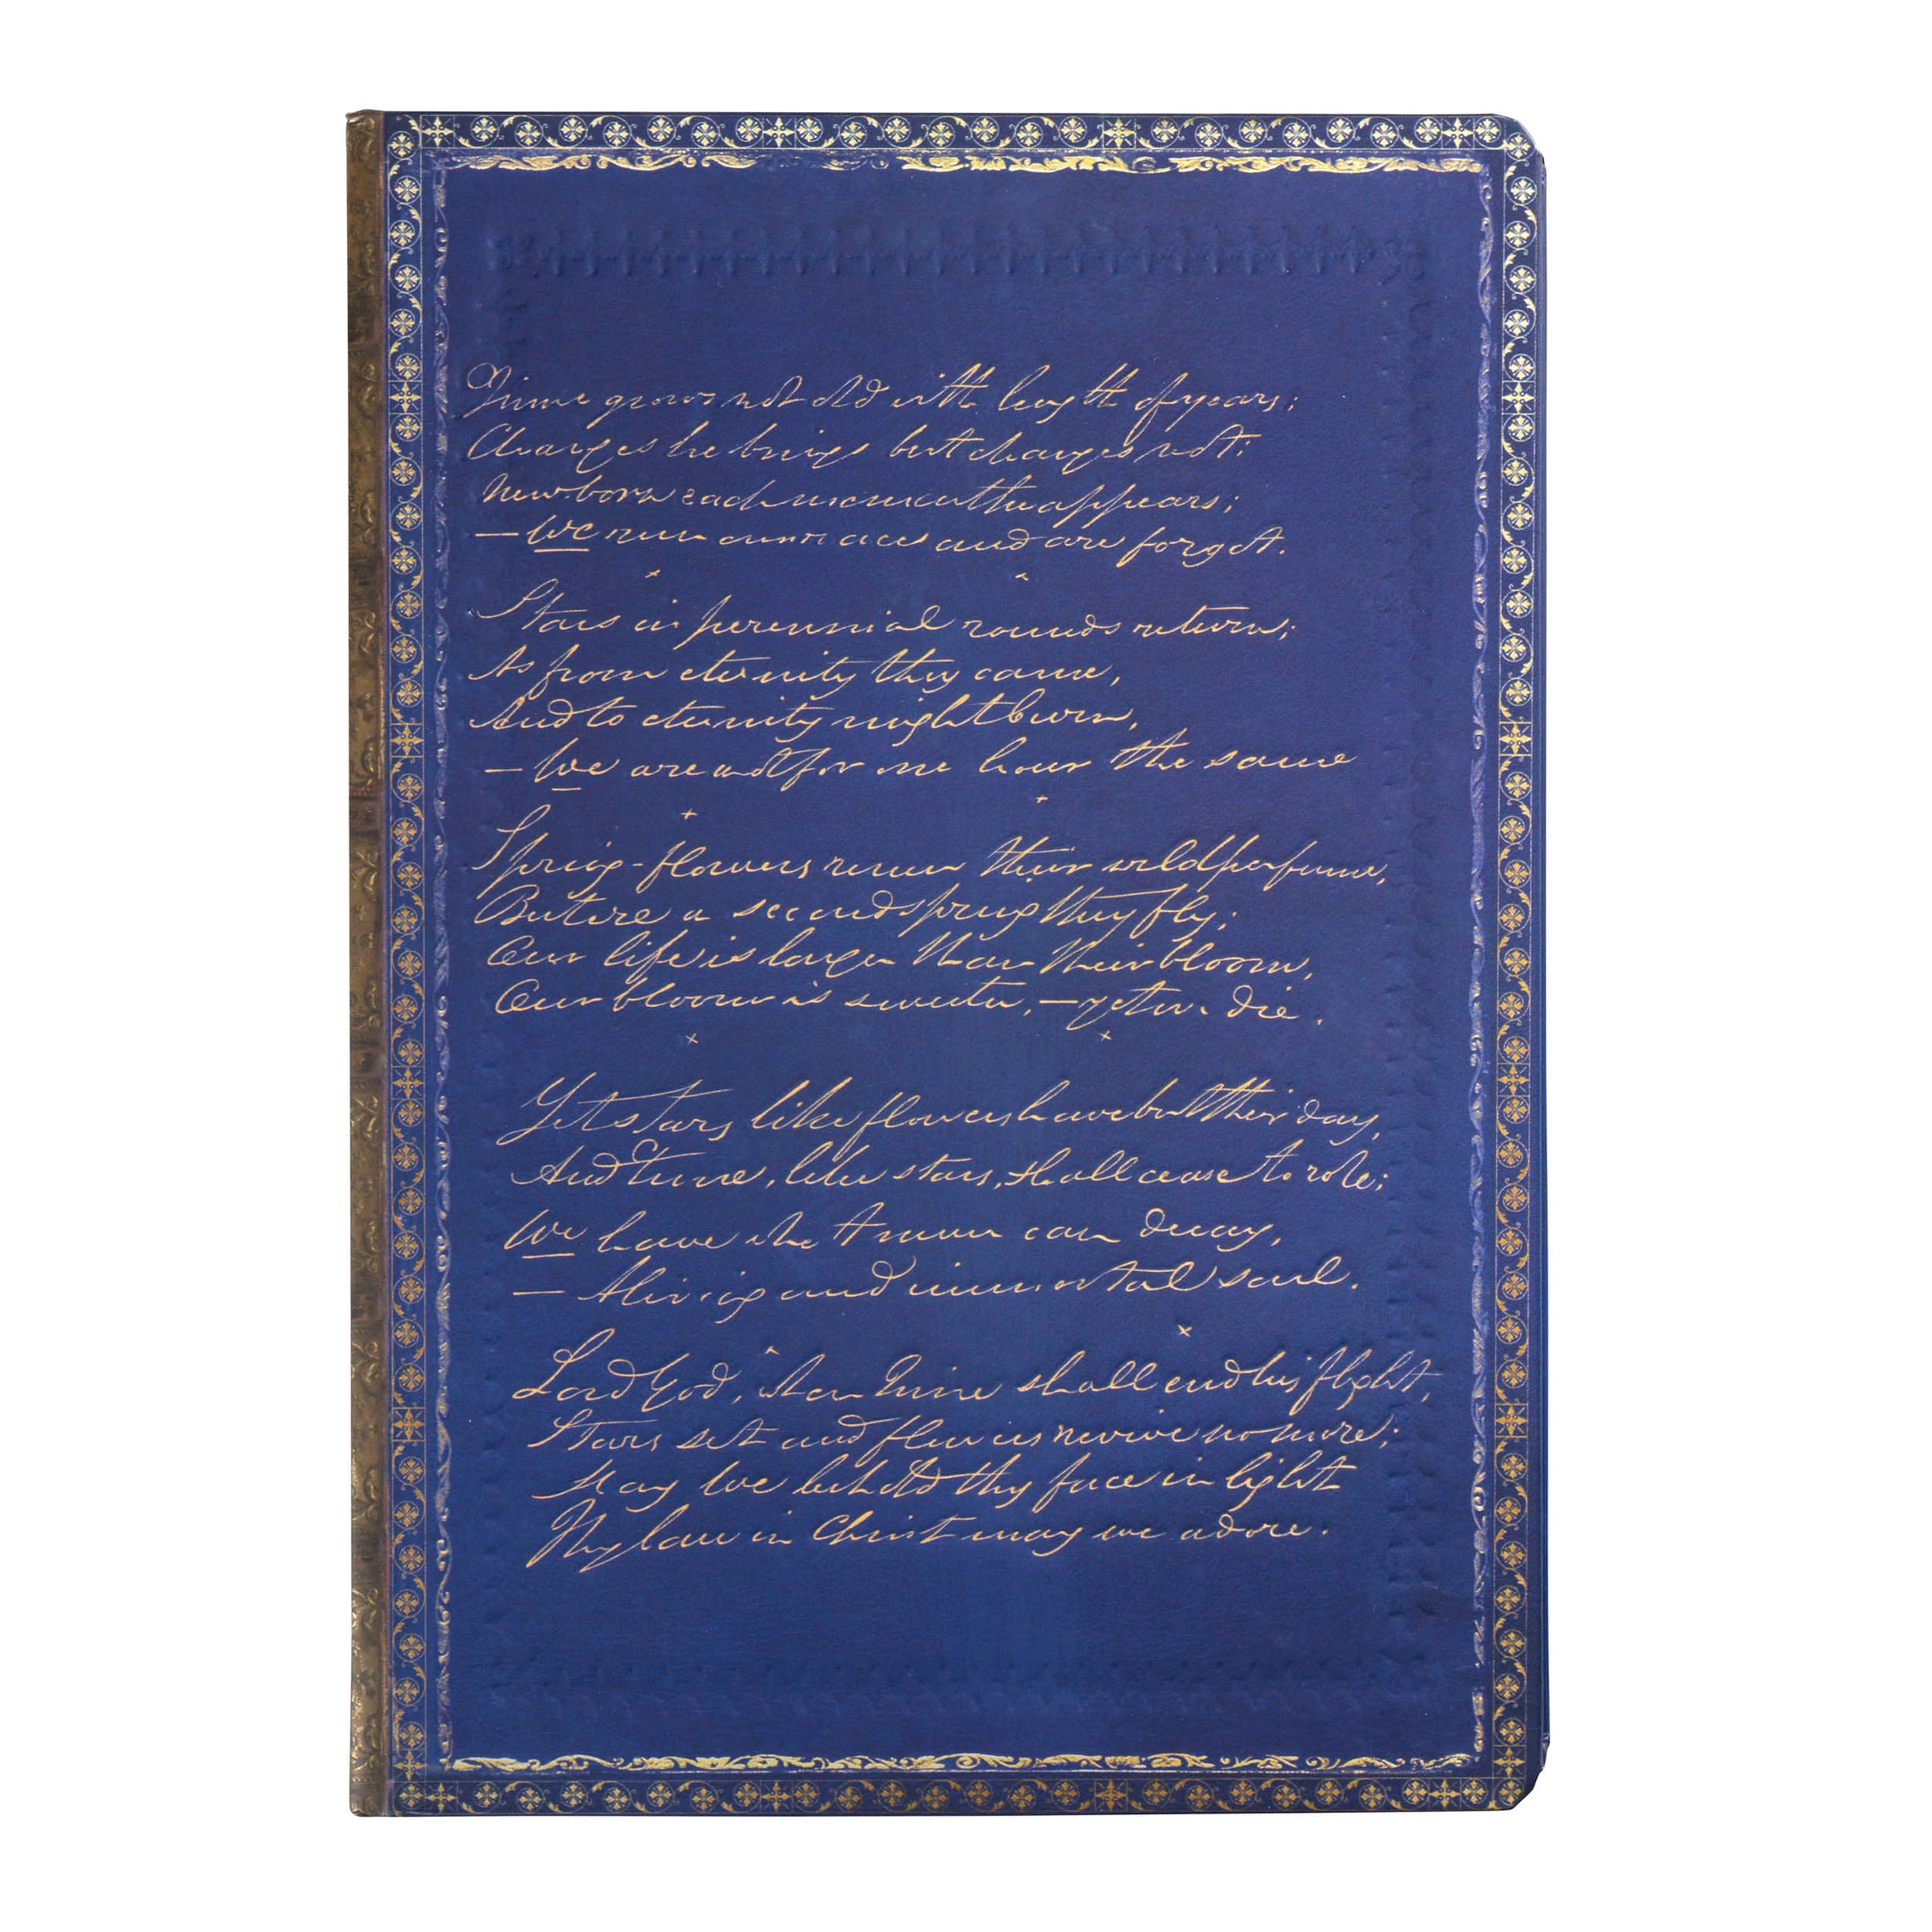 Time grows not old with length of years;
Changes he brings but changes not;
New-born each moment he appears;
— We run our race and are forgot.
Stars in perennial rounds return;
As from eternity they came,
And to eternity might burn,
— We are not for one hour the same
Spring-flowers renew their wild perfume,
But ere a second spring they fly;
Our life is longer than their bloom,
Our bloom is sweeter, — yet we die.
Yet stars like flowers have but their day,
And time, like stars, shall cease to role;
We have what never can decay,
— A living and immortal soul.
Lord God, when Time shall end his flight,
Stars set and flowers revive no more;
May we behold thy face in light
Thy law in Christ may we adore.